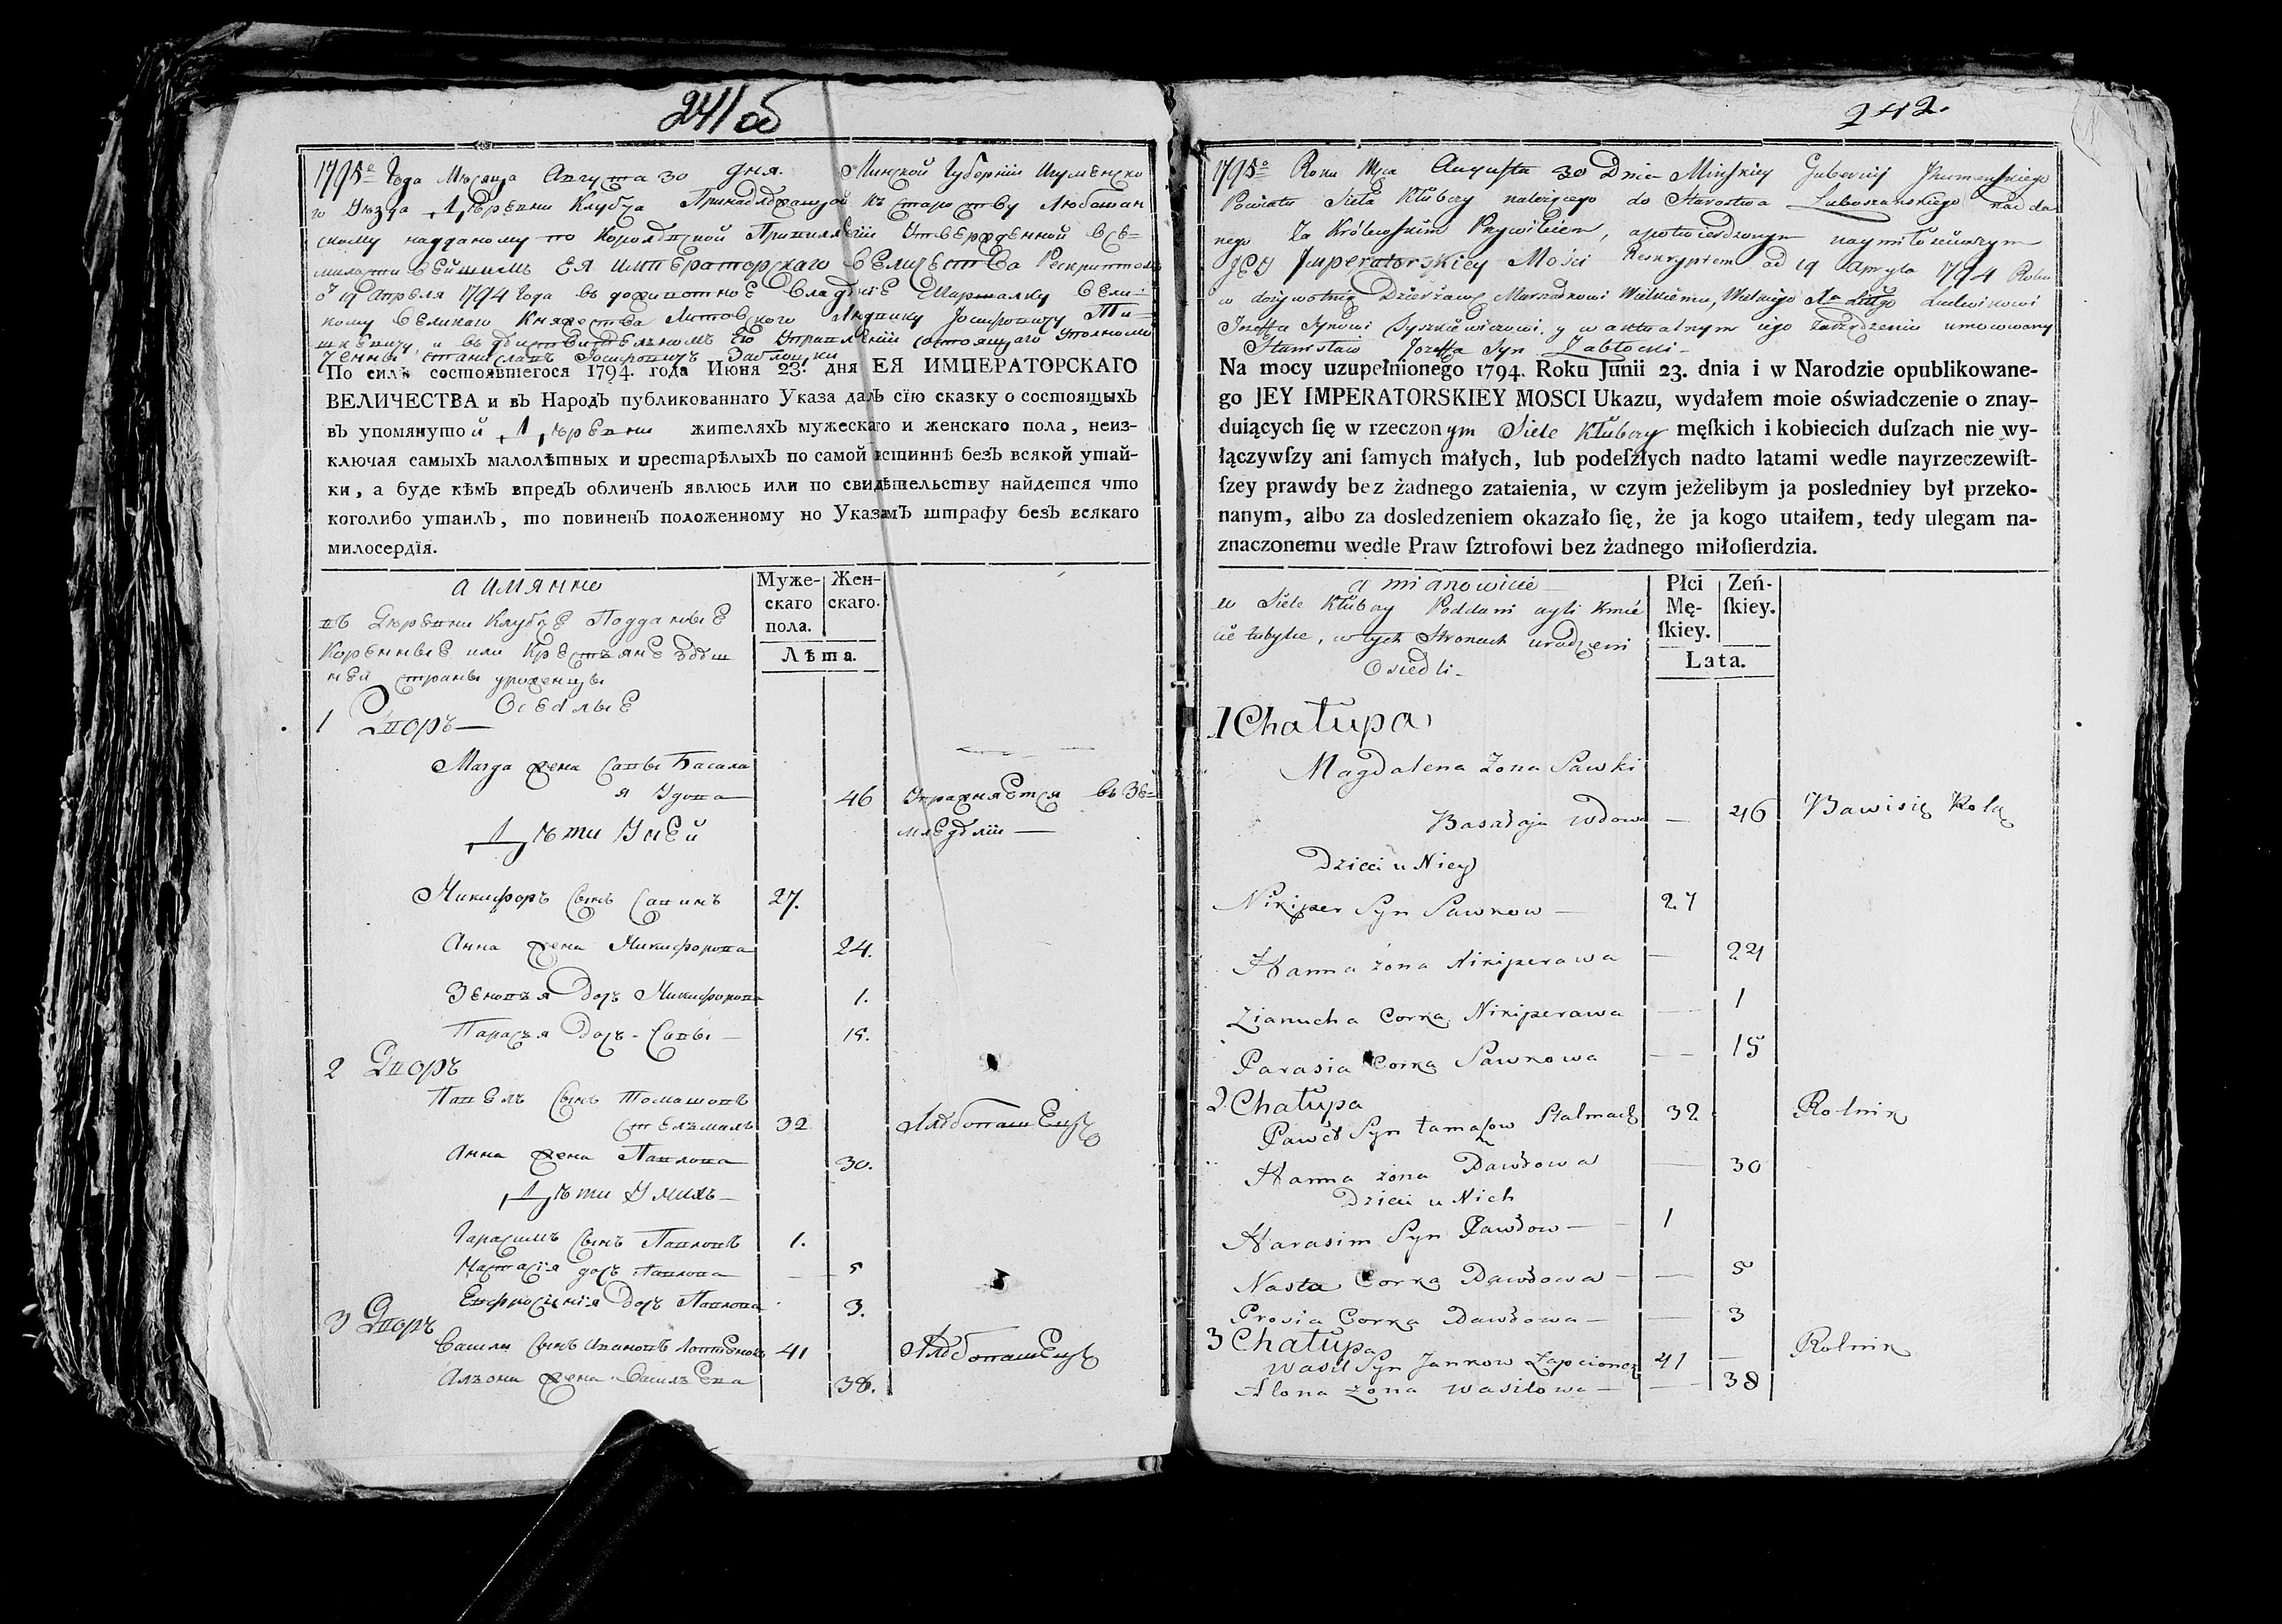 241 об
1795го Года Месяца Августа 30 дня. Минской Губернии Игуменско
го Уезда Деревни Клубча Принадлежащой къ староству Любошан
скому наданому по Королевской Привилегии Утвержденной все=
милостивейшимъ ЕЯ ИМПЕРАТОРСКАГО ВЕЛИЧЕСТВА Рескриптомъ
от 19 Апреля 1794 Года въ доживотное владение Маршалку Вели=
кому Великаго Княжества Литовского Людвику Иосифовичу Ти=
шкевичу, и въ действительномъ Его Управлении состоящаго Уполномо
ченный Станиславъ Иосифовичъ Заблоцки
По силѣ состоявшегося 1794. года Июня 23. дня ЕЯ ИМПЕРАТОРСКАГО
ВЕЛИЧЕСТВА и въ Народѣ публикованнаго Указа далъ сїю сказку о состоящыхъ
въ упомянутой Деревни жителяхъ мужескаго и женскаго пола, неиз-
ключая самыхъ малолѣтныхъ и престарѣлыхъ по самой истиннѣ безъ всякой утай-
ки, а буде кѣмъ впредь обличенъ явлюсь или по свидѣтельству найдется что
коголибо утаилъ, то повиненъ положенному по Указамъ штрафу безъ всякаго
милосердїя.
а имянно
въ Деревни Клубче Подданые
Коренные или Крестьяне здеш
ней страны уроженцы
Оселые
Муже-
скаго
пола.
Жен-
скаго.
Лѣта.
1 Дворъ —
Магда жена Савы Басала
я Удова 46 Упражняется въ Зе=
Дети У ней мледелии —
Микифоръ сынъ Савинъ 27.
Анна жена Микифорова 24.
Зеновья Дочь Микифорова 1.
Парасья Дочь - Савы — 15.
2 Дворъ
Павелъ сынъ Томашовъ
Стельмахъ 32 Хлебопашецъ
Анна жена Павлова 30.
Дети У нихъ —
Гарасимъ сынъ Павловъ 1.
Настасїя дочь Павлова — 5
Евфросинїя Дочь Павлова 3.
3 Дворъ
Василь сынъ Ивановъ Лоптенокъ 41 Хлебопашецъ
Альона жена Васильева 38.
242.
1795o Roku Mca Augusta 30 Dnia Minskiey Gubernij Jhumenskiego
Powiatu Sieła Kłubczy należącego do Starostwa Luboszańskiego nadda
nego Za Królewskim Przywileiem, apotwierdzonym naymiłościwszym
JEY Jmperatorskiey Mości Reskryptem od 19 Apryla 1794 Roku
w dożywotnią Dzierżawę Marszałkowi Wielkiemu, Wielkiego Xa Littgo Ludwikowi
Jozeffa Synowi Tyszkiewiczowi, y w aktualnym iego zarządzeniu umocowany
Stanisław Jozeffa Syn Zabłocki —
Na mocy uzupełnionego 1794. Roku Junii 23. dnia i w Narodzie opublikowane-
go JEY IMPERATORSKIEY MOSCI Ukazu, wydałem moie oświadczenie o znay-
duiących ſię w rzeczonym Siele Kłubczy męſkich i kobiecich duſzach nie wy-
łączywſzy ani ſamych małych, lub podeſzłych nadto latami wedle nayrzeczewiſt-
ſzey prawdy bez żadnego zataienia, w czym jeżelibym ja posledniey był przeko-
nanym, albo za dosledzeniem okazało ſię, że ja kogo utaiłem, tedy ulegam na-
znaczonemu wedle Praw ſztrofowi bez żadnego miłoſierdzia.
a mianowicie —
w Siele Kłubczy Poddani czyli Kmie
cie tubylce, w tych Stronach urodzeni
Osiedli —
Płci
Mę-
ſkiey.
Zeń-
ſkiey.
Lata.
1 Chałupa
Magdalena Zona Sawki
Basałaja wdowa — 46 Bawi się Rolą
Dzieci u Niey
Nikiper Syn Sawkow — 27
Hanna żona Nikiperawa — 24
Zianucha Corka Nikiperawa — 1
Parasia Corka Sawkowa — 15
2 Chałupa
Paweł Syn Tamaszow Stalmach 32 Rolnik
Hanna żona Pawłowa — 30
Dzieci u Nich
Harasim Syn Pawłow — 1
Nasta Corka Pawłowa — 5
Prosia Corka Pawłowa — 3
3 Chałupa
Wasil Syn Jankow Łapcionek 41 — Rolnik
Alona żona Wasilowa — 38